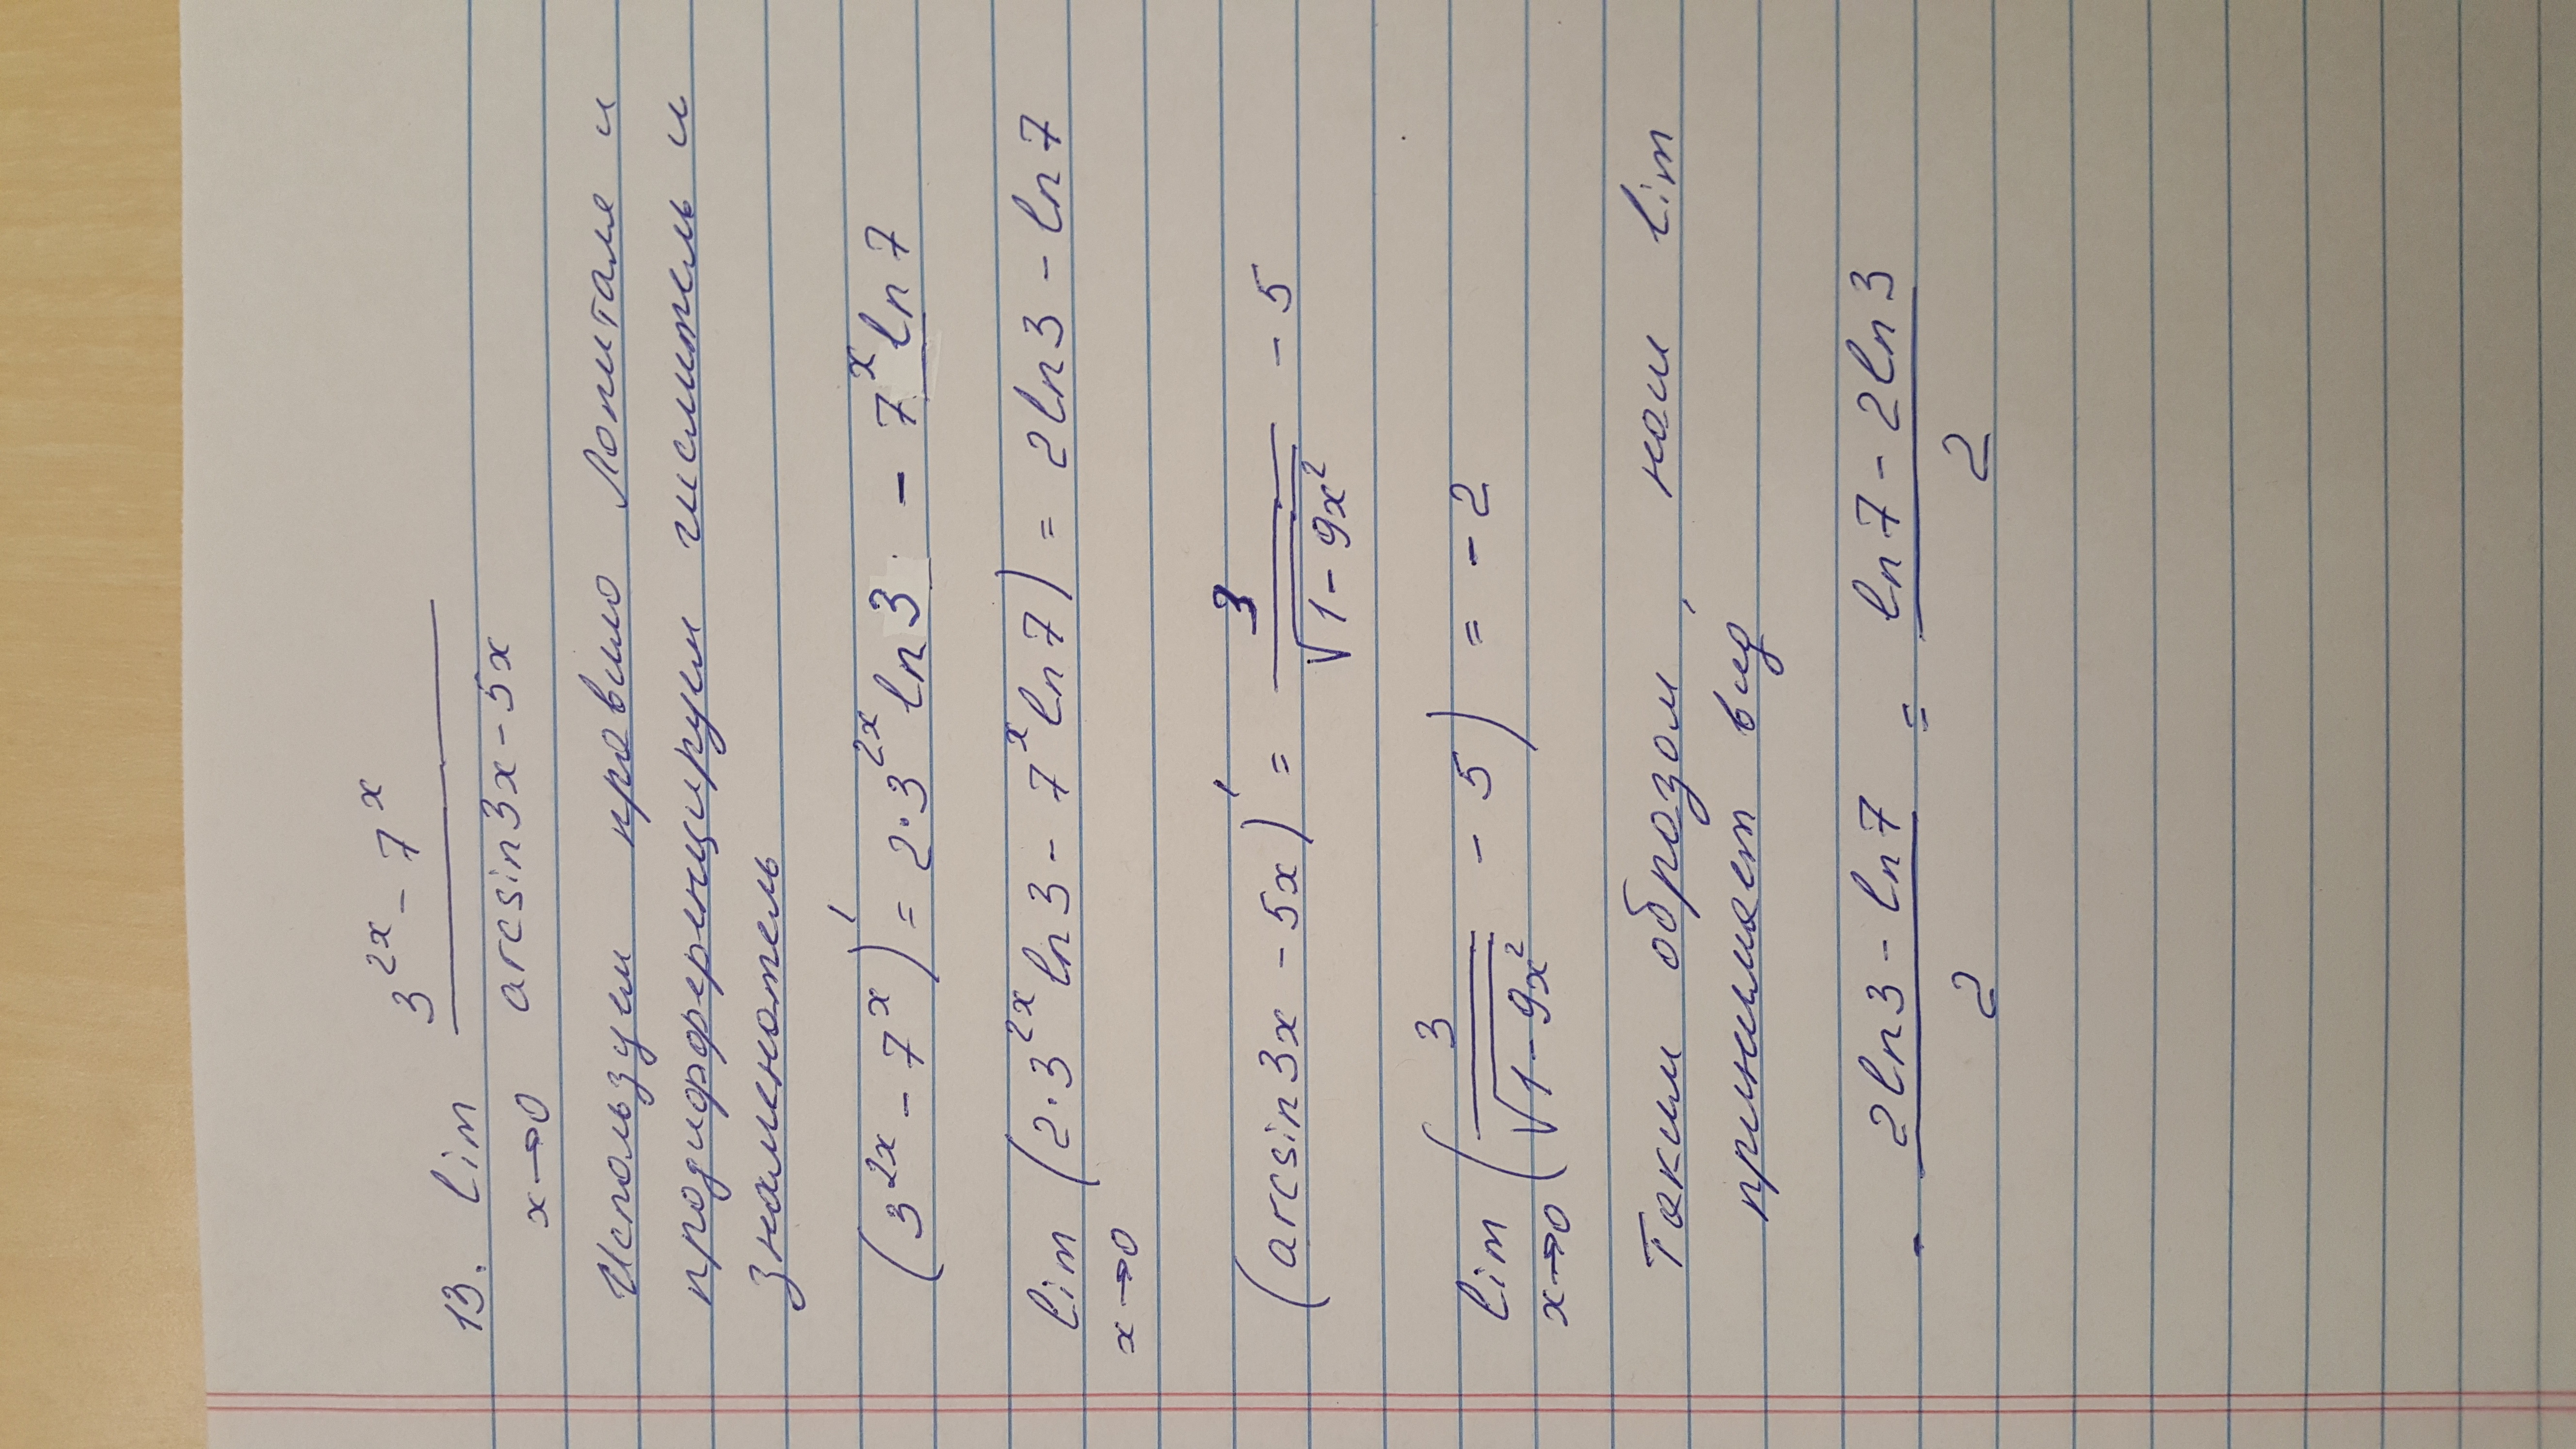 13. lim (3^{2x} - 7^x) / (arcsin3x - 5x)
x→0
Используем правило Лопиталя и
продифференцируем числитель и
знаменатель
(3^{2x} - 7^x)' = 2·3^{2x} ln3 - 7^x ln7
lim (2·3^{2x} ln3 - 7^x ln7) = 2ln3 - ln7
x→0
(arcsin3x - 5x)' = 3 / √(1-9x²) - 5
lim (3 / √(1-9x²) - 5) = -2
x→0
Таким образом, наш lim
принимает вид
- (2ln3 - ln7) / 2 = (ln7 - 2ln3) / 2